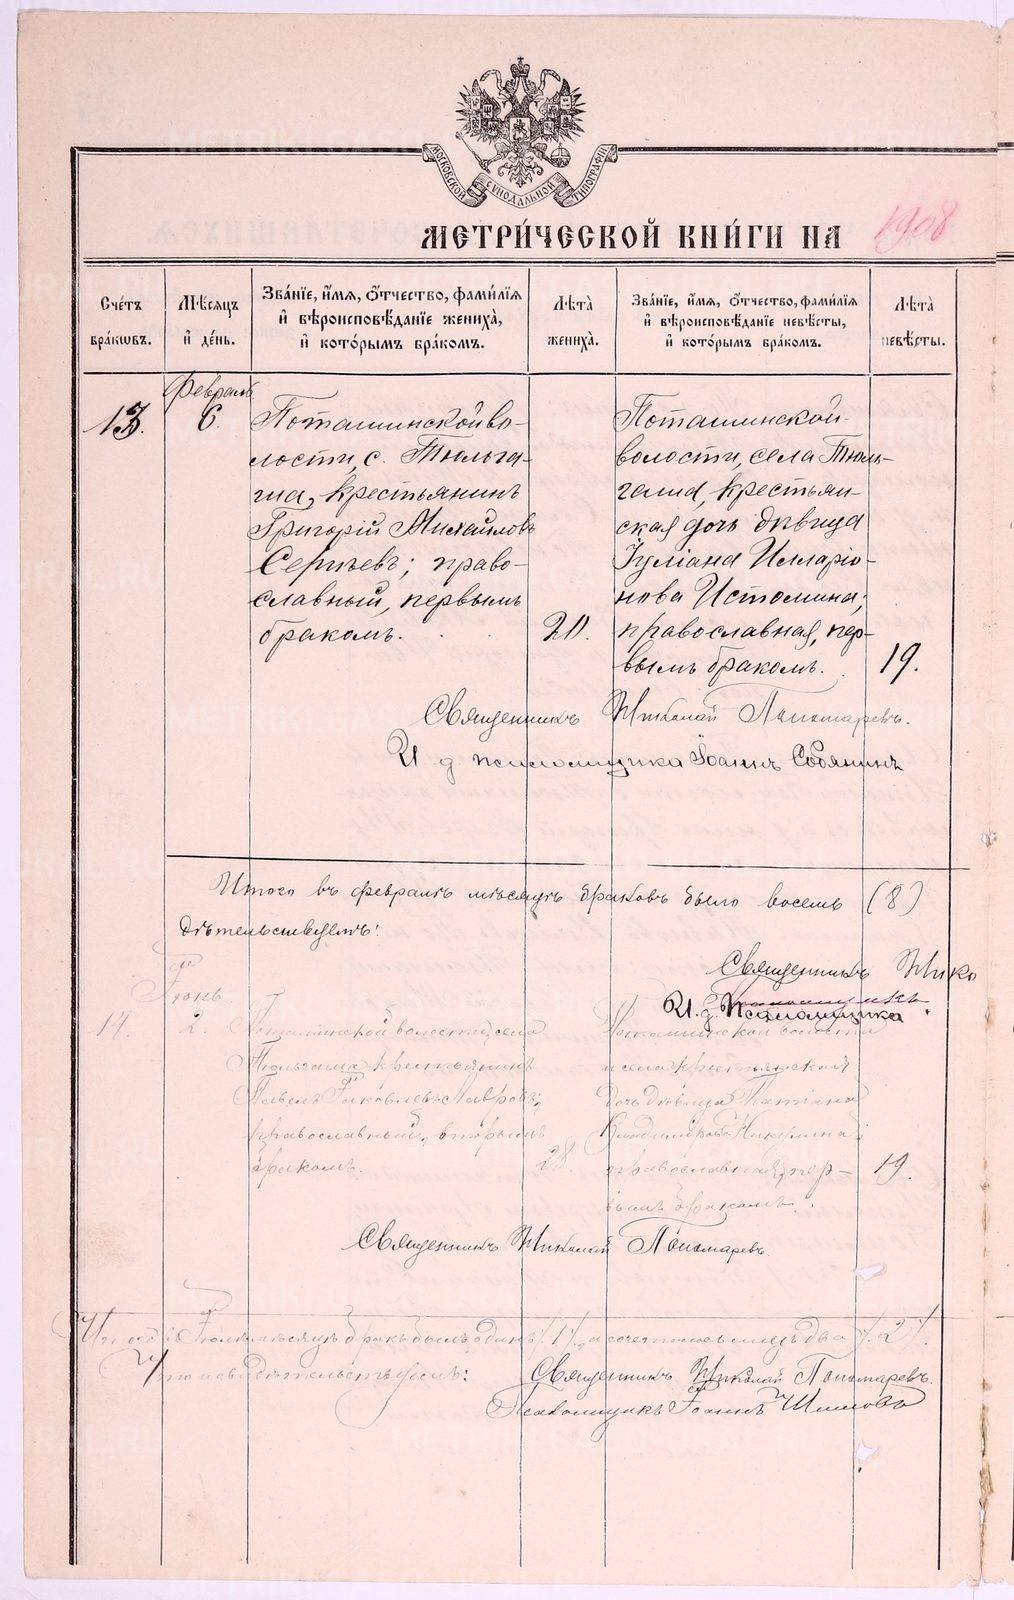 МОСКОВСКОЙ СѴНОДАЛЬНОЙ ТИПОГРАФІИ
МЕТРИ́ЧЕСКОЙ КНИ́ГИ НА 1908
Сче́тъ бра́кωвъ.
Мѣ́сяцъ и҆ де́нь.
Зва́нїе, и҆́мѧ, ѻ҆́тчество, фами́лїѧ
и҆ вѣроисповѣ́данїе жениха̀,
и҆ кото́рымъ бра́комъ.
Лѣта̀ жениха̀.
Зва́нїе, и҆́мѧ, ѻ҆́тчество, фами́лїѧ
и҆ вѣроисповѣ́данїе невѣ́сты,
и҆ кото́рымъ бра́комъ.
Лѣта̀ невѣ́сты.
Февраль
13.
6.
Поташинской во-
лости, с. Тюльга-
ша, крестьянинъ
Григорій Михайловъ
Сергѣевъ; право-
славный, первымъ
бракомъ.
20.
Поташинской
волости, села Тюль-
гаша, крестьян-
ская дочь дѣвица
Іуліана Илларіо-
нова Истомина;
православная, пер-
вымъ бракомъ.
19.
Священникъ Николай Пономаревъ.
И д псаломщика Іоаннъ Собянинъ
Итого въ февралѣ мѣсяцѣ браковъ было восемь (8)
дѣтельствуемъ:
Священникъ Нико
И. д. Псаломщика
Іюнь.
14
2.
Поташинской волости, села
Тюльгаша крестьянинъ
Павелъ Іаковлевъ Лавровъ;
православный, вторымъ
бракомъ.
28.
Поташинской волости
и села крестьянской
дочь дѣвица Татіана
Владимірова Никулина
православная, пер-
вымъ бракомъ.
19.
Священникъ Николай Пономаревъ
мѣсяцѣ бракъ былъ одинъ /1/, а сочетшихъ лицъ два /2/.
Священникъ Николай Пономаревъ.
Псаломщикъ Іоаннъ Шишовъ